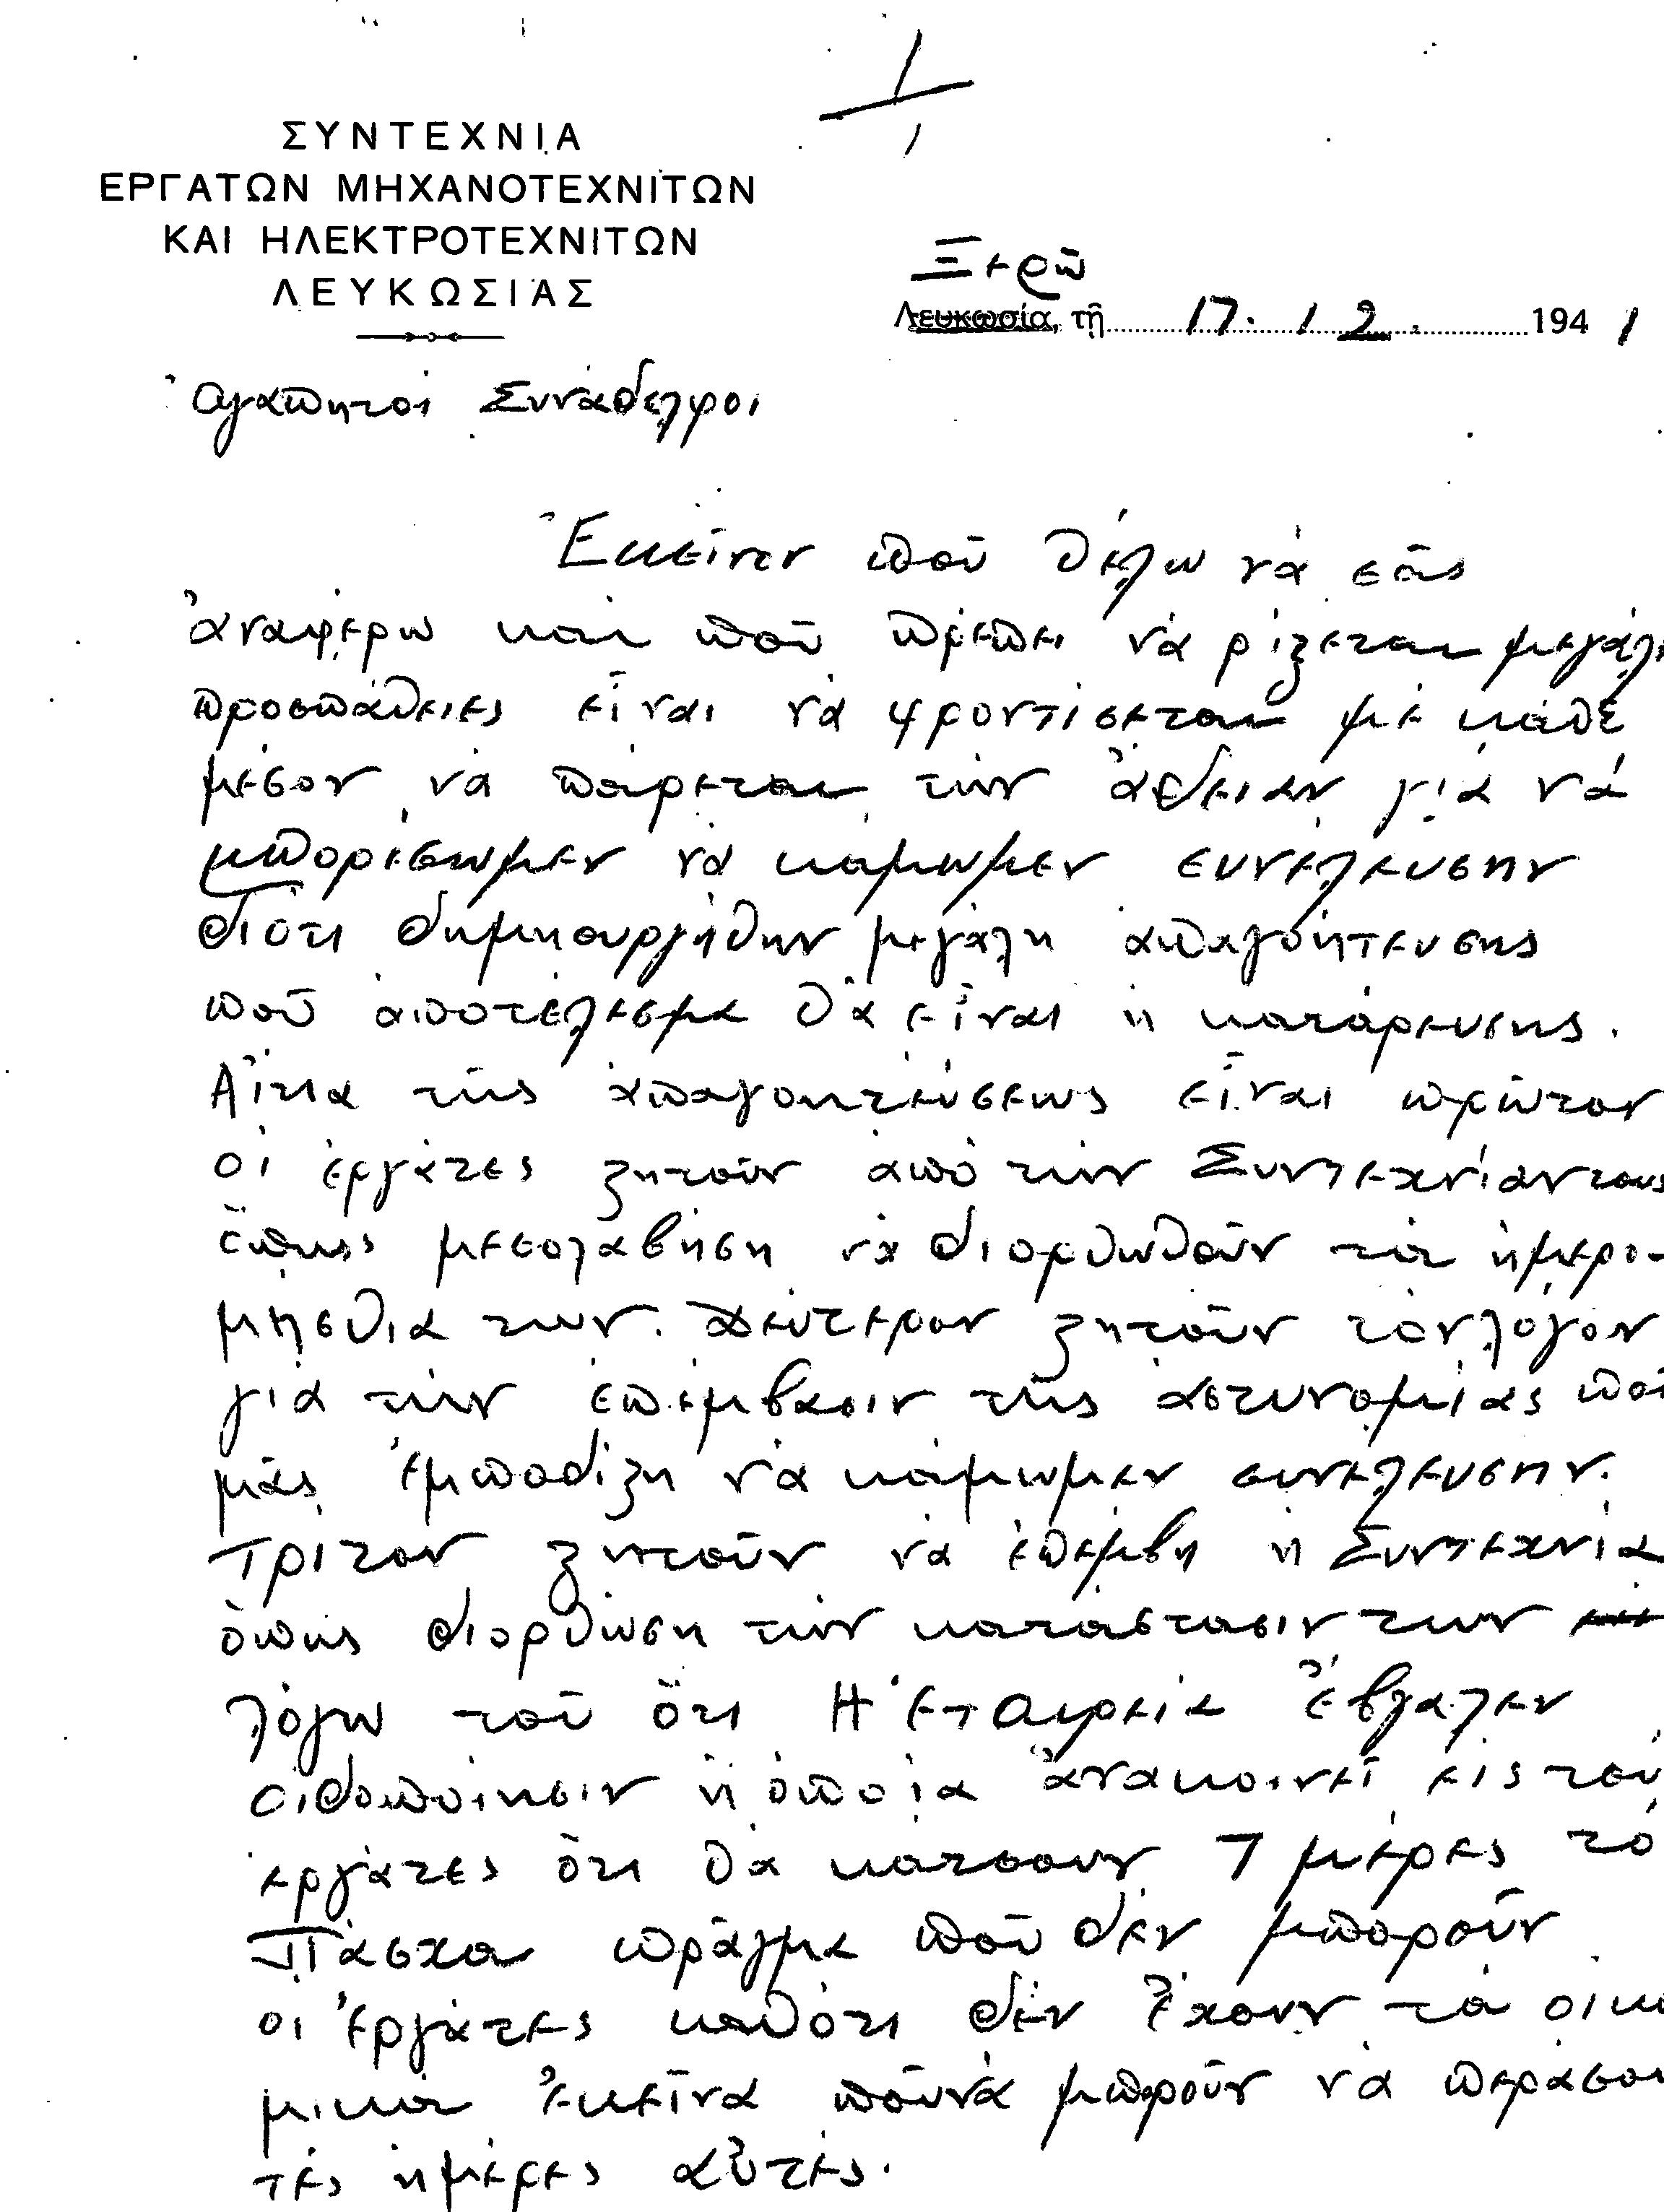 ΣΥΝΤΕΧΝΙΑ
ΕΡΓΑΤΩΝ ΜΗΧΑΝΟΤΕΧΝΙΤΩΝ
ΚΑΙ ΗΛΕΚΤΡΟΤΕΧΝΙΤΩΝ
ΛΕΥΚΩΣΙΑΣ
Ξερῶ
Λευκωσία, τῇ 17. 12. 1941
Ἀγαπητοί Συνάδελφοι
Ἐκείνον ποῦ θέλω νά σᾶς
ἀναφέρω και ποῦ πρέπει νά ρίξεται μεγάλε
προσπάθειες εἶναι νά φροντίσεται μέ κάθε
μέσον νά πάρεται τήν ἄδειαν γιά νά
μπορέσωμεν νά κάμωμεν συνέλευσην
διότι δημιουργήθην μεγάλη ἀπαγοήτευσης
ποῦ ἀποτέλεσμα θά εἶναι ἡ κατάρευσης.
Αἴτια τῆς ἀπαγοητεύσεως εἶναι πρῶτον
οἱ ἐργάτες ζητοῦν ἀπό τήν Συντεχνίαν τους
ὅπως μεσολαβήση νά διορθωθοῦν τά ἡμερο-
μησθια των. Δεύτερον ζητοῦν τόν λόγον
γιά τήν ἐπέμβασιν τῆς ἀστυνομίας ποῦ
μᾶς ἐμποδίζη νά κάμωμεν συνέλευσην.
Τρίτον ζητοῦν νά ἐπέμβη ἡ Συντεχνία
ὅπως διορθώση τήν κατάστασιν των
λόγω τοῦ ὅτι Η Ἑταιρεία ἔβγαλεν
οιδοποίησιν ἡ ὁποία ἀνακοινεῖ εἰς τού
ἐργάτες ὅτι θά κάτσουν 7 μέρες τό
Πάσχα πρᾶγμα ποῦ δέν μποροῦν
οἱ Ἐργάτες καθότι δέν ἔχουν τά οικο
μικά ἐκεῖνα ποῦ νά μποροῦν νά περάσου
τές ἡμέρες αὐτές.